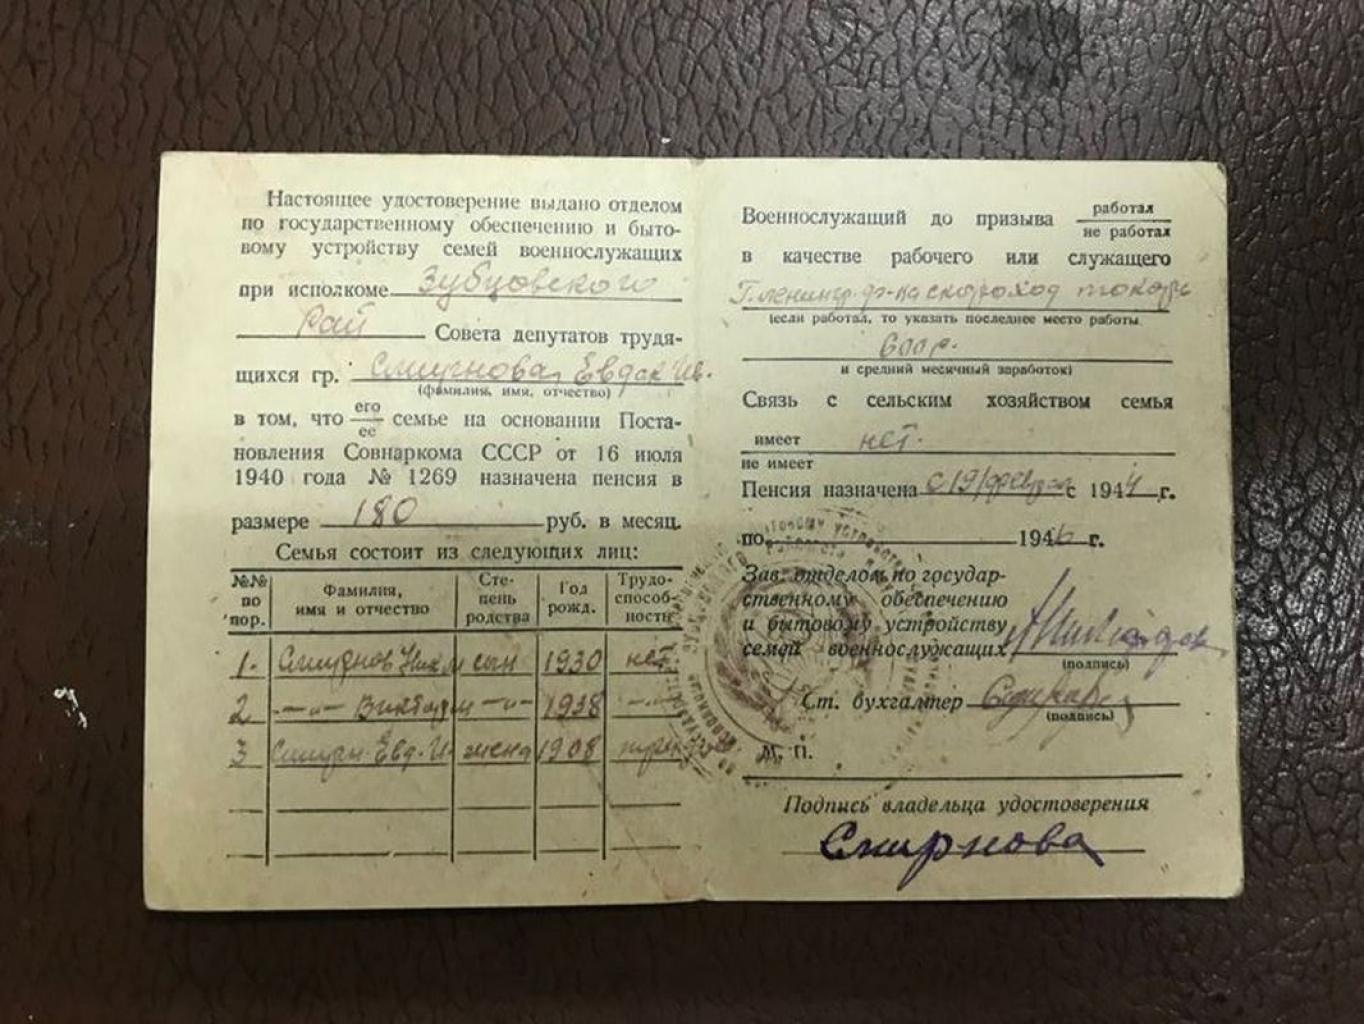 Настоящее удостоверение выдано отделом
по государственному обеспечению и быто-
вому устройству семей военнослужащих
при исполкоме Зубцовского
Рай Совета депутатов трудя-
щихся гр. Смирнова Евдок Ив.
(фамилия, имя, отчество)
в том, что его
ее
семье на основании Поста-
новления Совнаркома СССР от 16 июля
1940 года № 1269 назначена пенсия в
размере 180 руб. в месяц.
Семья состоит из следующих лиц:
№№ по пор. Фамилия, имя и отчество Сте- пень родства Год рожд. Трудо- способ- ность
1. Смирнов сын 1930 нет
2 —„— Виктор —„— 1938 —„—
3 Смирн. Евд. И. жена 1908
Военнослужащий до призыва работал
не работал
в качестве рабочего или служащего
Г. Ленингр. ф-ка скороход токарь
(если работал, то указать последнее место работы
600 р.
и средний месячный заработок)
Связь с сельским хозяйством семья
имеет нет.
не имеет
Пенсия назначена с 19/февраля с 1944 г.
по 1946 г.
Зав. отделом по государ-
ственному обеспечению
и бытовому устройству
семей военнослужащих
(подпись)
Ст. бухгалтер
(подпись)
М. П.
Подпись владельца удостоверения
Смирнова